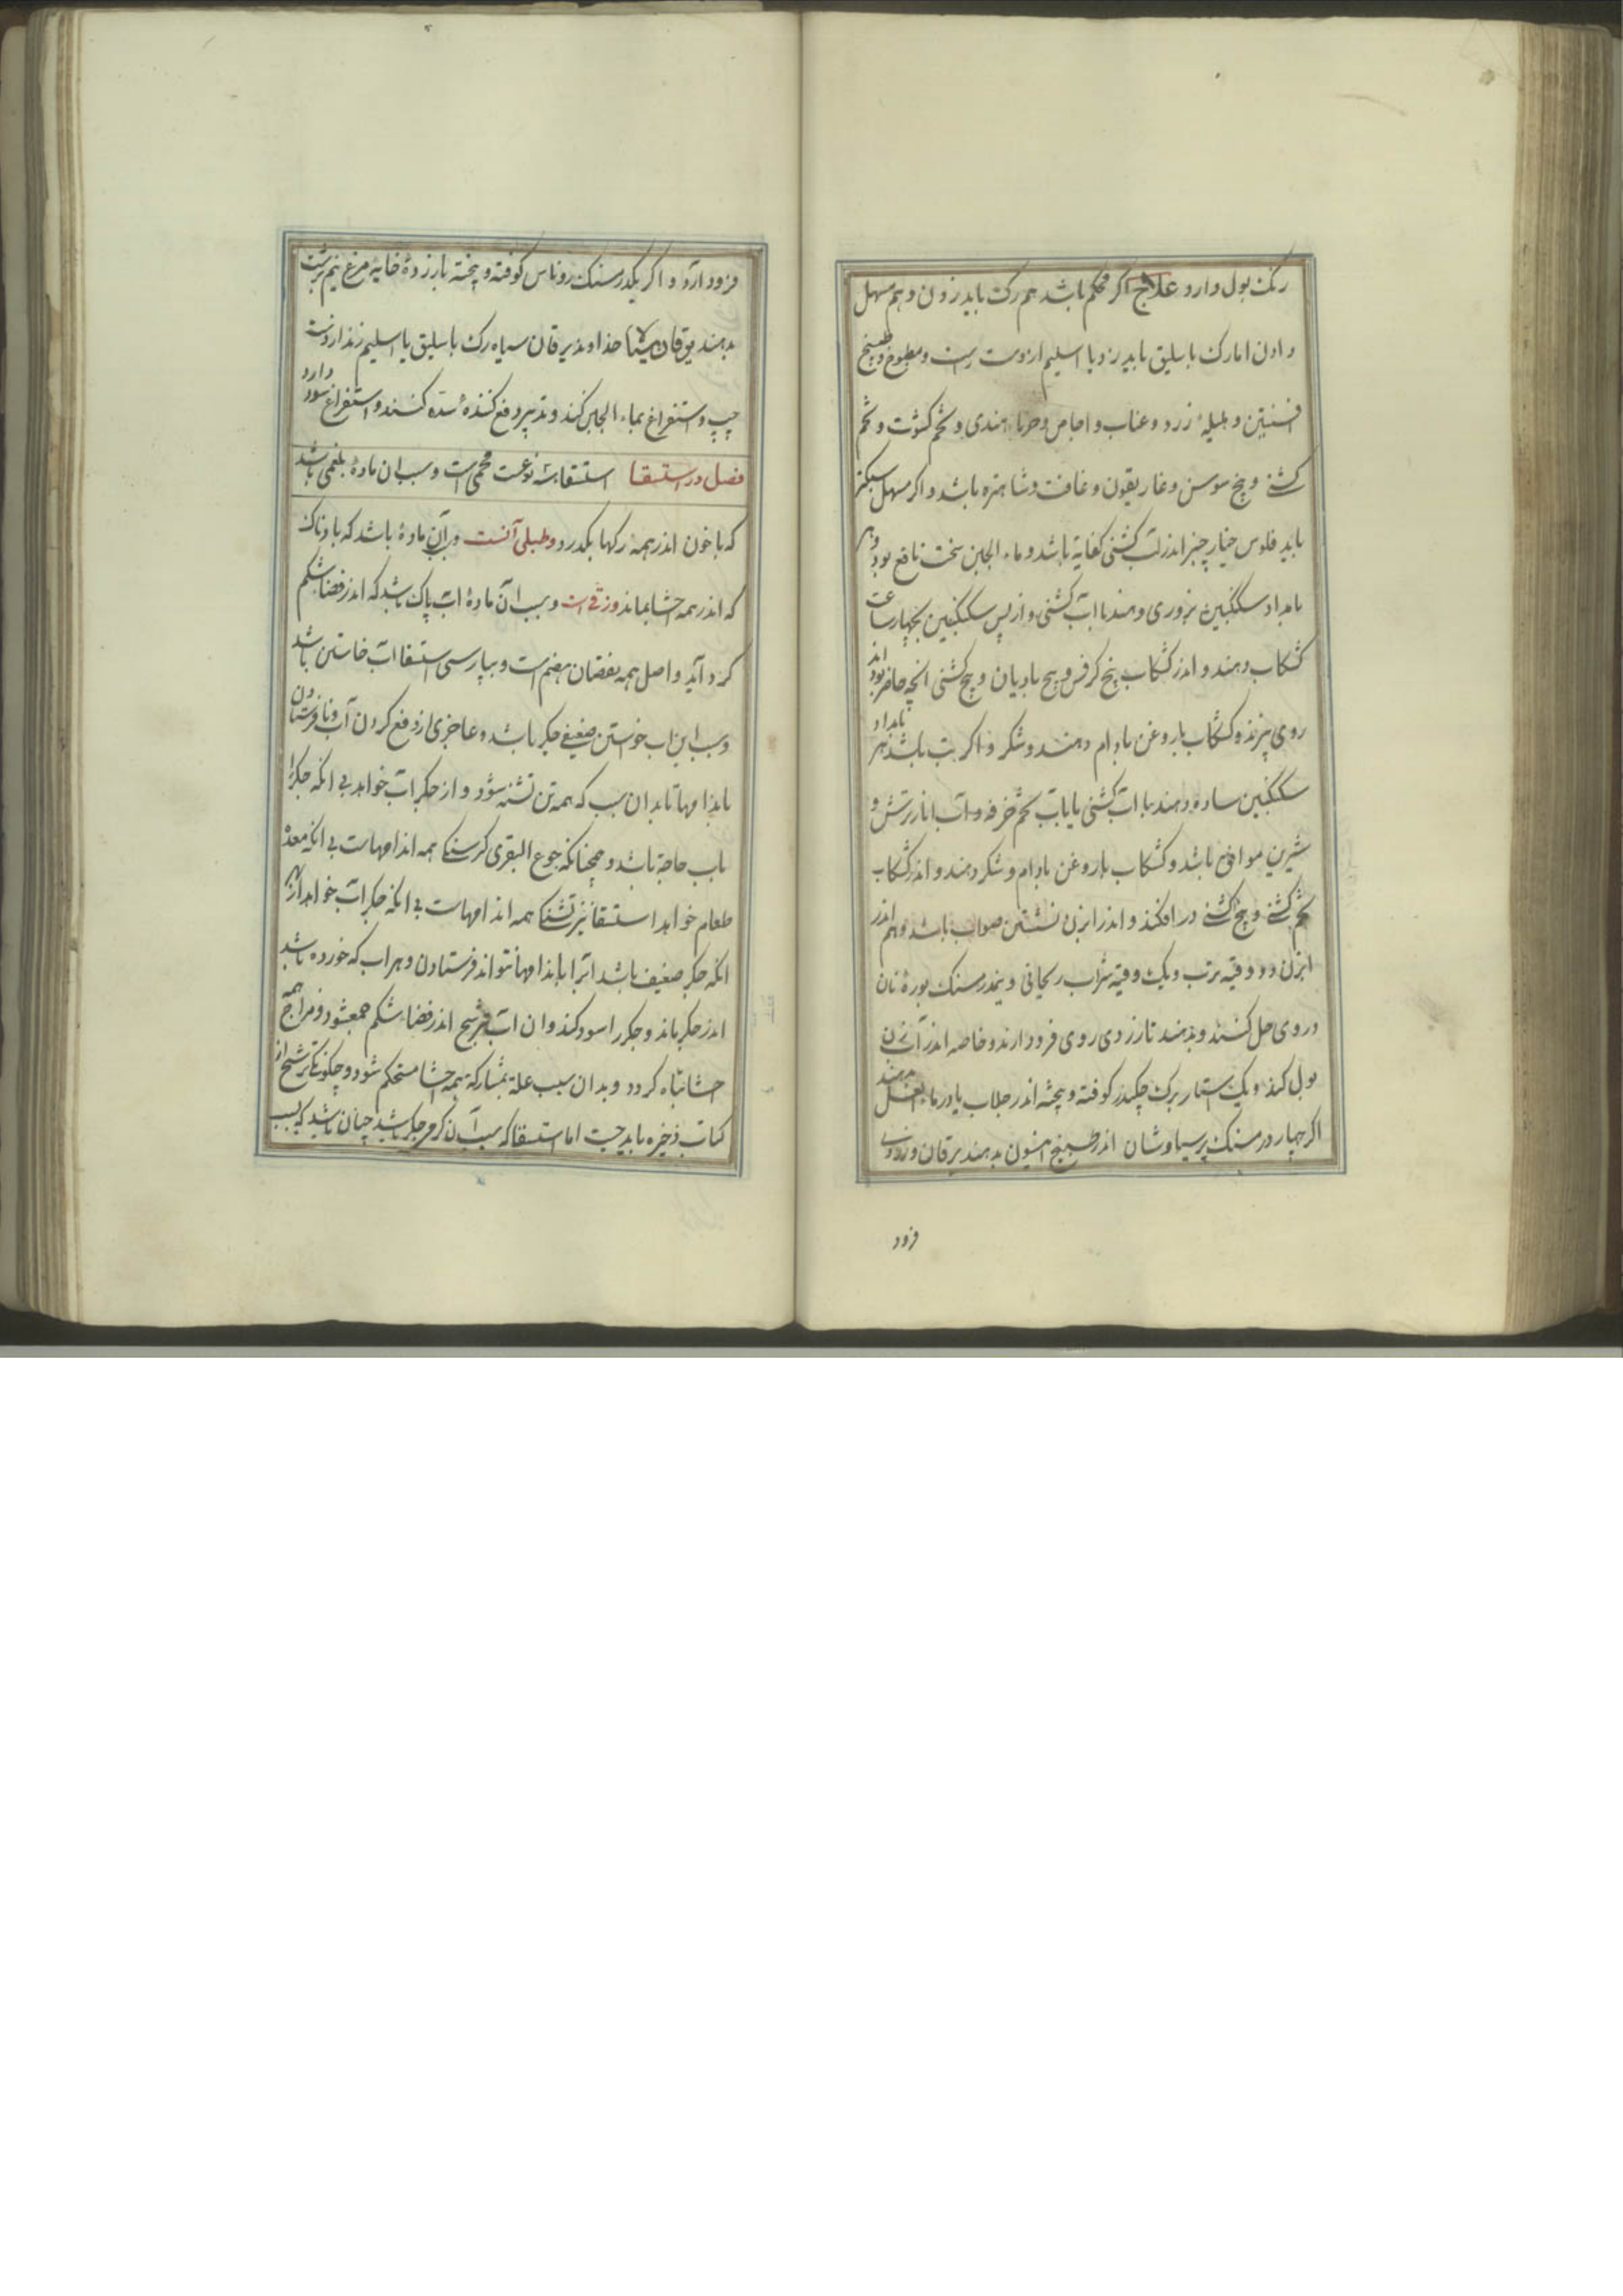 رنک بول دارد علاج اکر محکم باشد هم رک باید زدن و هم مسهل
دادن اما رک باسلیق باید زد یا اسیلم از دست راست و مطبوخ و طبیخ
افسنتین و هلیله زرد و عناب و اجاص و خرماء هندی و تخم کشوث و تخم
کشنی و بیخ سوسن و غاریقون و غافت و شاهتره باشد و اکر مسهل سبکتر
باید فلوس خیارچنبر اندر آب کشنی کفایة باشد و ماء الجبن سخت نافع بود و هر
بامداد سکنکبین بزوری دهند با آب کشنی و از پس سکنکبین بچهار ساعت
کشکاب دهند و اندر کشکاب بیخ کرفس و بیخ بادیان و بیخ کشنی انچه حاضر بود اندر
روی بپزند و کشکاب با روغن بادام دهند و شکر و اکر تب باشد هر بامداد
سکنکبین ساده دهند با آب کشنی یا باب تخم خرفه و آب انار ترش و
شیرین موافق باشد و کشکاب با روغن بادام و شکر دهند و اندر کشکاب
تخم کشنی و بیخ کشنی در افکند و اندر ابزن نشستن صواب باشد و هم اندر
ابزن دو وقیه ترب و یک وقیه شراب ریحانی و نیمدرمسنک بوره نان
در وی حل کنند و بدهند تا زردی روی فرود ارند و خاصه اندر ابزن
بول کند و یک استار برک چکندر کوفته و پخته اندر جلاب یا در ماء العسل دهند
اکر چهار درمسنک پرسیاوشان اندر طبیخ انیسون بدهند یرقان و زردی
فرود
فرود آرد و اکر یکدرمسنک روناس کوفته و پخته با زرده خایه مرغ نیم برشت
بدهند یرقان سیاه خداوند یرقان سیاه رک باسلیق یا اسیلم زنند از دست
چپ و استفراغ بماء الجبن کنند و تدبیر دفع کننده سده کنند و استفراغ سود دارد
فصل در استسقا استسقا سه نوعست لحمی است و سبب ان ماده بلغمی باشد
که با خون اندر همه رکها بکدرد و طبلی آنست و سبب آن ماده باشد که بادناک
که اندر همه احشا بماند و زقی است و سبب آن ماده آب پاک باشد که اندر فضاء شکم
کرد آید و اصل همه نقصان هضم است و بپارسی استسقا آب خاستن باشد
و سبب این اب خواستن ضعیفی جکر باشد و عاجزی از دفع کردن آب و نافرستادن
باندامها تا بدان سبب که همه تن تشنه شود و از جکر آب خواهد بی انکه جکر را
باب حاجة باشد و همچنانکه جوع البقری کرسنکی همه اندامهاست بی انکه معده
طعام خواهد استسقا نیز تشنکی همه اندامهاست بی انکه جکر آب خواهد از بهر
انکه جکر ضعیف باشد آنرا باندامها نتواند فرستادن و هر اب که خورده باشد
اندر جکر بماند و جکر را سود کند و ان آب بترشیح اندر فضاء شکم جمع شود و مزاج همه
احشا تباه کردد و بدان سبب علة بمشارکة همه احشا مستحکم شود و چکونکی ترشیح از
کتاب ذخیره باید جست اما استسقا که سبب آن کرمی جکر باشد چنان باشد که بسبب